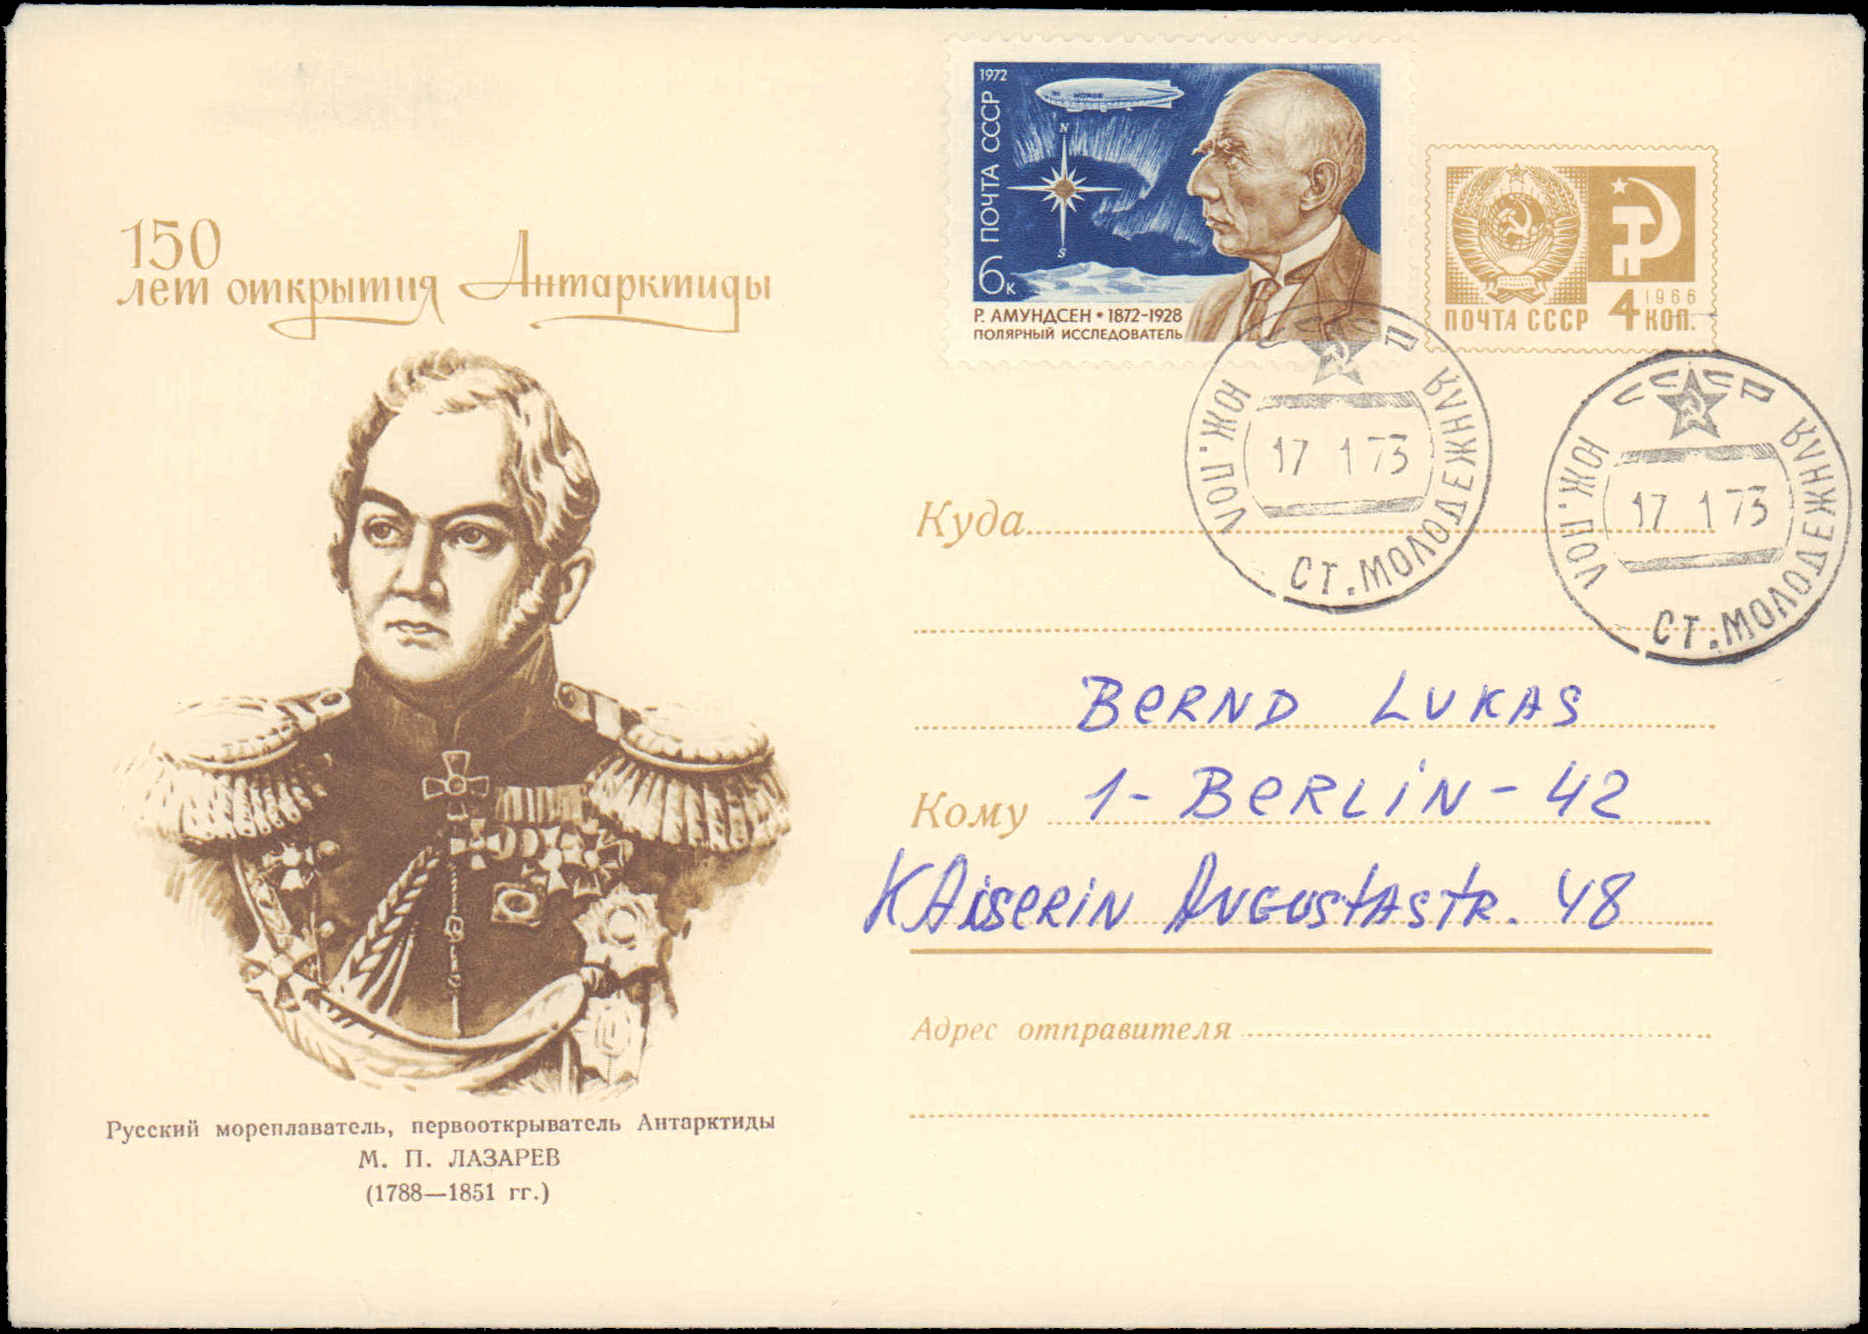 150
лет открытия Антарктиды
1972
ПОЧТА СССР
N
S
6 к
Р. АМУНДСЕН • 1872-1928
ПОЛЯРНЫЙ ИССЛЕДОВАТЕЛЬ
1966
ПОЧТА СССР 4 КОП.
СССР
ЮЖ. ПОЛ
17 1 73
СТ. МОЛОДЕЖНАЯ
СССР
ЮЖ. ПОЛ
17 1 73
СТ. МОЛОДЕЖНАЯ
Куда
BERND LUKAS
Кому 1-BERLiN-42
KAiSERiN AUGUSTASTR. 48
Адрес отправителя
Русский мореплаватель, первооткрыватель Антарктиды
М. П. ЛАЗАРЕВ
(1788—1851 гг.)